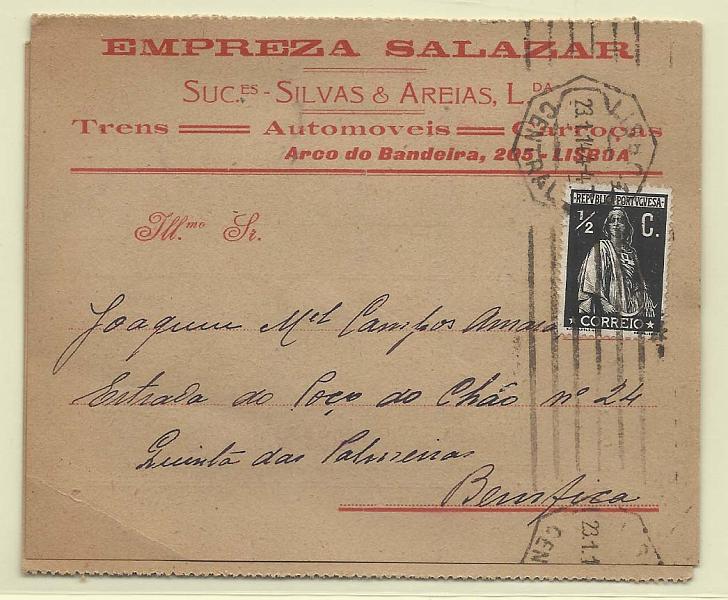 EMPREZA SALAZAR
SUC.ES - SILVAS & AREIAS, L.DA
Trens = Automoveis = Carroças
Arco do Bandeira, 205 - LISBOA
Ill.mo Sr.
Joaquim Mel Campos Amaro
Estrada do Poço do Chão nº 24
Quinta das Palmeiras
Bemfica
REPVBLICA PORTVGVESA
1/2 C.
CORREIO
CENTRAL
23.1.1
CEN